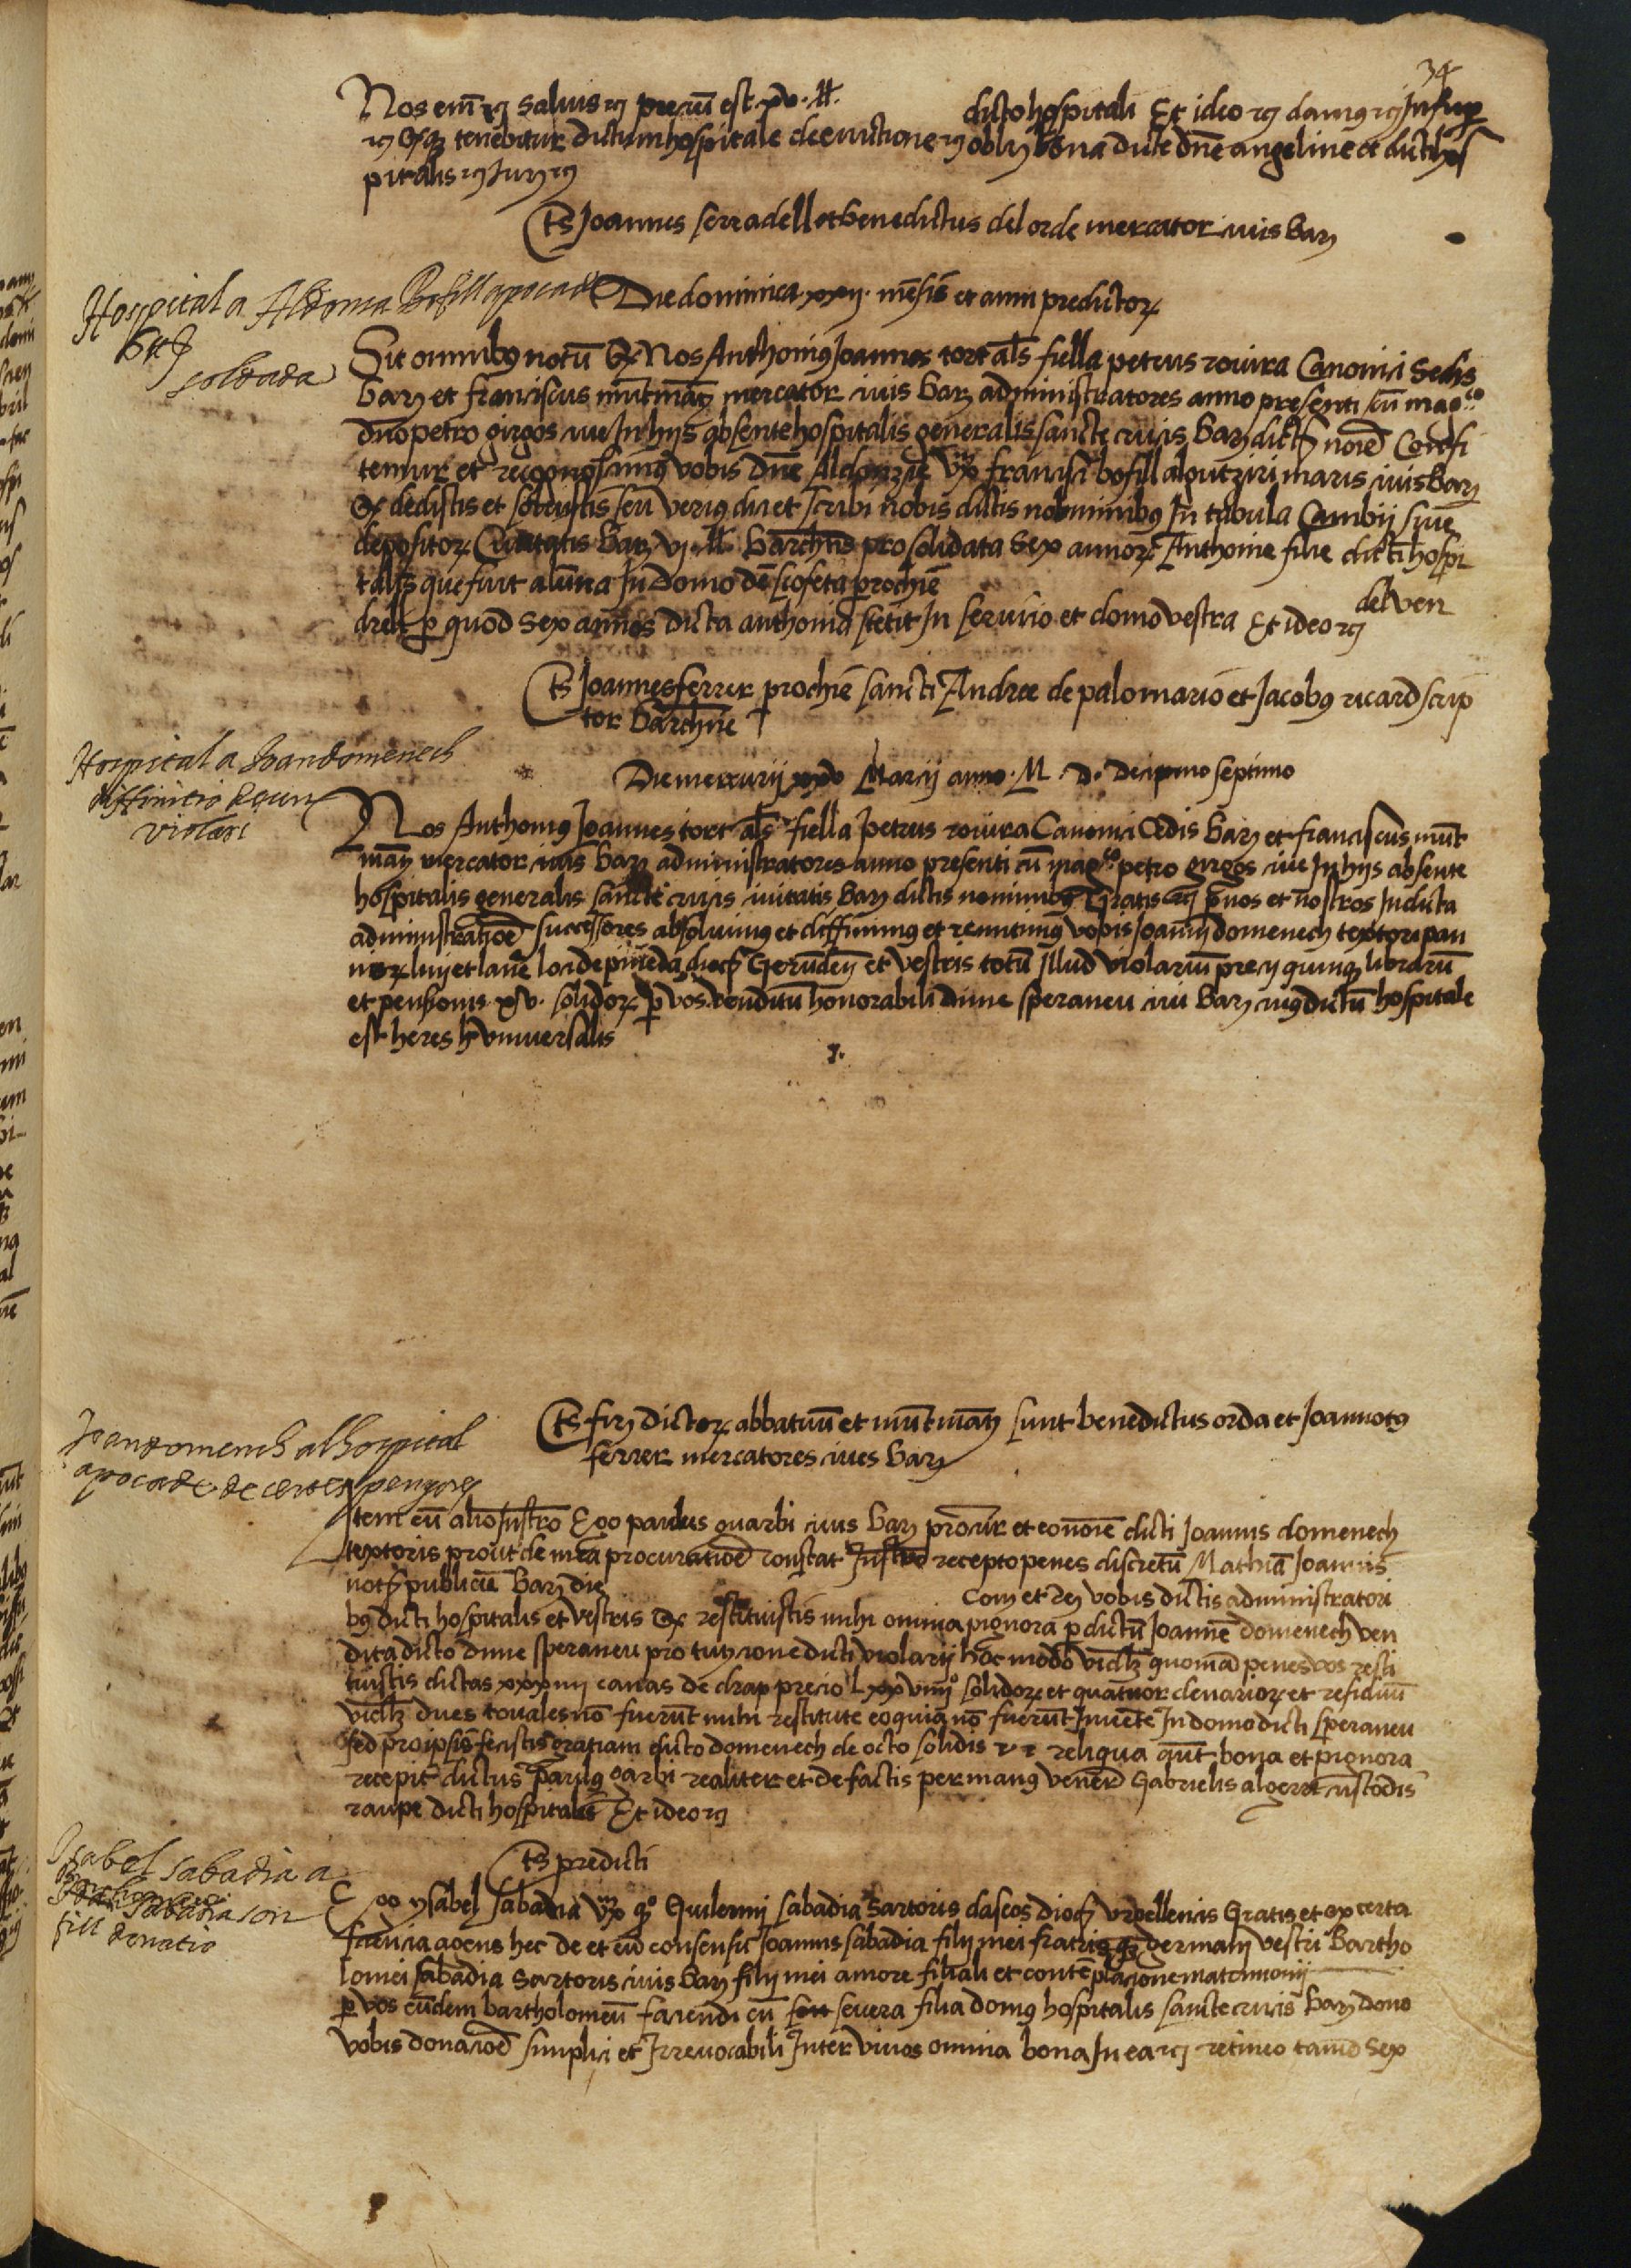 34
Nos em̄ rꝫ saluis rꝫ preciū est xv. ll. dicto hospitali Et ideo rꝫ damꝯ rꝫ Insuꝑ
rꝫ Qꝫ tenebitur dictum hospitale de euictione rꝫ obliꝫ bona dicte dn̄e angeline et dicti hos
pitalis rꝫ Iurꝫ rꝫ
Ts Joannes serradell et benedictus del orde mercator ciuis barꝫ
Hospital a Aldonsa Bofill apoca de
soldada
Die dominica xxij. mēsis et anni predictoꝝ
Sit omnibꝯ notū Qꝫ Nos Anthoniꝯ Joannes tort al̄s fiella petrus rouira Canonici Sedis
barꝫ et franciscus mūtmāy mercator ciuis barꝫ administratores anno presenti cū mag.co
dn̄o petro girgos ciue In hijs absente hospitalis generalis sancte crucis barꝫ dictꝭ noīe Confi
temur et recognoscimꝯ vobis dn̄e Aldonzie vxͦ francisci bofill aloutziri maris ciuis barꝫ
Qꝫ dedistis et soluistis seu veriꝯ dici et scribi nobis dictis nominibꝯ In tabula Cambij siue
depositoꝝ Ciuitatis barꝫ vj. ll. barchn̄ pro soldata sex annoꝝ Anthonie filie dicti hospi
talis que fuit alūna In domo de scofeta prochiē
del ven
drell ꝑ quod sex annos dicta anthonia stetit In seruicio et domo vestra Et ideo rꝫ
Ts Joannes ferrer prochiē sancti Andree de palomario et Jacobꝯ ricard scrip
tor barchn̄e
Hospital a Joan domenech
diffinitio de un
violari
Die mercurij xxv Marcij anno. M. D. Decimo septimo
Nos Anthoniꝯ Joannes tort al̄s fiella petrus rouira Canonici Sedis barꝫ et franciscus mūt
māy mercator ciuis barꝫ administratores anno presenti cū mag.co petro girgos ciue In hijs absente
hospitalis generalis sancte crucis ciuitatis barꝫ dictis nominibꝯ Gratis rꝫ ꝑ nos et nostros In dicta
administratiōe successores absoluimꝯ et diffinimꝯ et remitimꝯ vobis Joanni domenech textori pan
noꝝ linj et lane loci de pineda diocꝭ Gerundeñ et vestris totū illud violariū precij quinqꝫ librarū
et pensionis xv. solidoꝝ ꝑ vos venditū honorabili dime speraneu ciui barꝫ cuiꝯ dictū hospitale
est heres vniuersalis
Ts firꝫ dictoꝝ abbatuū et mūtmāy sunt benedictus orda et Joannotꝯ
ferrer mercatores ciues barꝫ
Joan domench al hospital
apoca de certes penyores
Item cū alio Instro Ego paulus guarbi ciuis barꝫ procur̄ et eo noīe dicti Joannis domenech
textoris prout de mea procuratiōe constat Instrō recepto penes discretū Mathiā Joannis
notꝭ publicū barꝫ die Con et reꝫ vobis dictis administratori
bꝯ dicti hospitalis et vestris Qꝫ restituistis mihi omnia pignora ꝑ dictū Joannē domenech ven
dita dicto dime speraneu pro tuycione dicti violarij hoc modo videlꝫ quoniā penes vos resti
tuistis dictas xxxiiij canas de drap precio Lxxviiijͦ solidoꝝ et quatuor denarioꝝ et residuū
videlꝫ dues touales nō fuerūt mihi restitute eo quia nō fuerūt Inuēte In domo dicti speraneu
sed pro ipsis fecistis gratiam dicto domenech de octo solidis et reliqua āūt bona et pignora
recepit dictus paulꝯ garbi realiter et de factis per manꝯ vener̄ Gabrielis algerri custodis
raupe dicti hospitalis Et ideo rꝫ
Ts predicti
Isabel sabadia a
sabadia son
fill donatio
Ego ysabel sabadia vxͦ qͦ Guilermi sabadia sartoris daseos diocꝭ vrgellencis Gratis et ex certa
sciencia agens hec de et cū consensu Joannis sabadia filij mei fratris qꝫ germani vestri Bartho
lomei sabadia sartoris ciuis barꝫ filij mei amore filiali et conteplacione matrimonij
ꝑ vos eūdem bartholomeū faciendi cū seuera filia domꝯ hospitalis sancte crucis barꝫ dono
vobis donaciōe simplici et Irreuocabili Inter viuos omnia bona In ea rꝫ retineo tamē sex